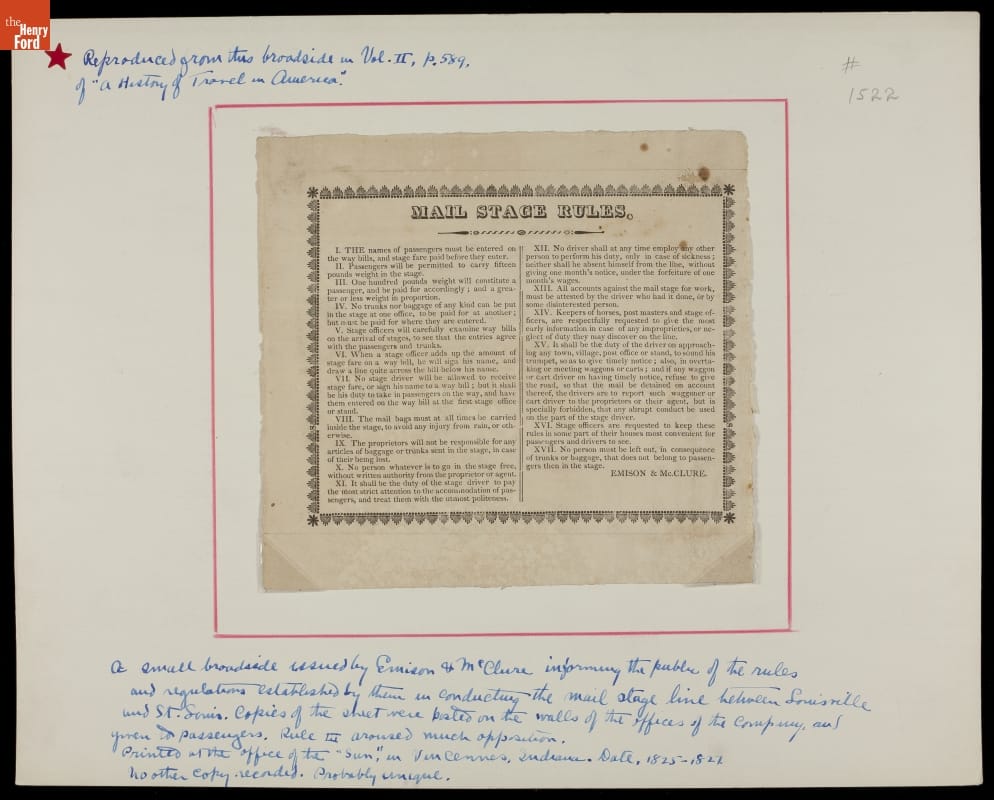 the
Henry
Ford
Reproduced from this broadside in Vol. II, p. 589,
of "A History of Travel in America".
#
1522
MAIL STAGE RULES.
I. THE names of passengers must be entered on
the way bills, and stage fare paid before they enter.
II. Passengers will be permitted to carry fifteen
pounds weight in the stage.
III. One hundred pounds weight will constitute a
passenger, and be paid for accordingly; and a grea-
ter or less weight in proportion.
IV. No trunks nor baggage of any kind can be put
in the stage at one office, to be paid for at another;
but must be paid for where they are entered.
V. Stage officers will carefully examine way bills
on the arrival of stages, to see that the entries agree
with the passengers and trunks.
VI. When a stage officer adds up the amount of
stage fare on a way bill, he will sign his name, and
draw a line quite across the bill below his name.
VII. No stage driver will be allowed to receive
stage fare, or sign his name to a way bill; but it shall
be his duty to take in passengers on the way, and have
them entered on the way bill at the first stage office
or stand.
VIII. The mail bags must at all times be carried
inside the stage, to avoid any injury from rain, or oth-
erwise.
IX. The proprietors will not be responsible for any
articles of baggage or trunks sent in the stage, in case
of their being lost.
X. No person whatever is to go in the stage free,
without written authority from the proprietor or agent.
XI. It shall be the duty of the stage driver to pay
the most strict attention to the accommodation of pas-
sengers, and treat them with the utmost politeness.
XII. No driver shall at any time employ any other
person to perform his duty, only in case of sickness;
neither shall be absent himself from the line, without
giving one month's notice, under the forfeiture of one
month's wages.
XIII. All accounts against the mail stage for work,
must be attested by the driver who had it done, or by
some disinterested person.
XIV. Keepers of horses, post masters and stage of-
ficers, are respectfully requested to give the most
early information in case of any improprieties, or ne-
glect of duty they may discover on the line.
XV. It shall be the duty of the driver on approach-
ing any town, village, post office or stand, to sound his
trumpet, so as to give timely notice; also, in overta-
king or meeting waggons or carts; and if any waggon
or cart driver on having timely notice, refuse to give
the road, so that the mail be detained on account
thereof, the drivers are to report such waggoner or
cart driver to the proprietors or their agent, but is
specially forbidden, that any abrupt conduct be used
on the part of the stage driver.
XVI. Stage officers are requested to keep these
rules in some part of their houses most convenient for
passengers and drivers to see.
XVII. No person must be left out, in consequence
of trunks or baggage, that does not belong to passen-
gers then in the stage.
EMISON & Mc.CLURE.
A small broadside issued by Emison & McClure informing the public of the rules
and regulations established by them in conducting the mail stage line between Louisville
and St. Louis. Copies of the sheet were posted on the walls of the offices of the company, and
given to passengers. Rule III aroused much opposition.
Printed at the office of the "Sun", in Vincennes, Indiana. Date, 1825-182
No other copy recorded. Probably unique.